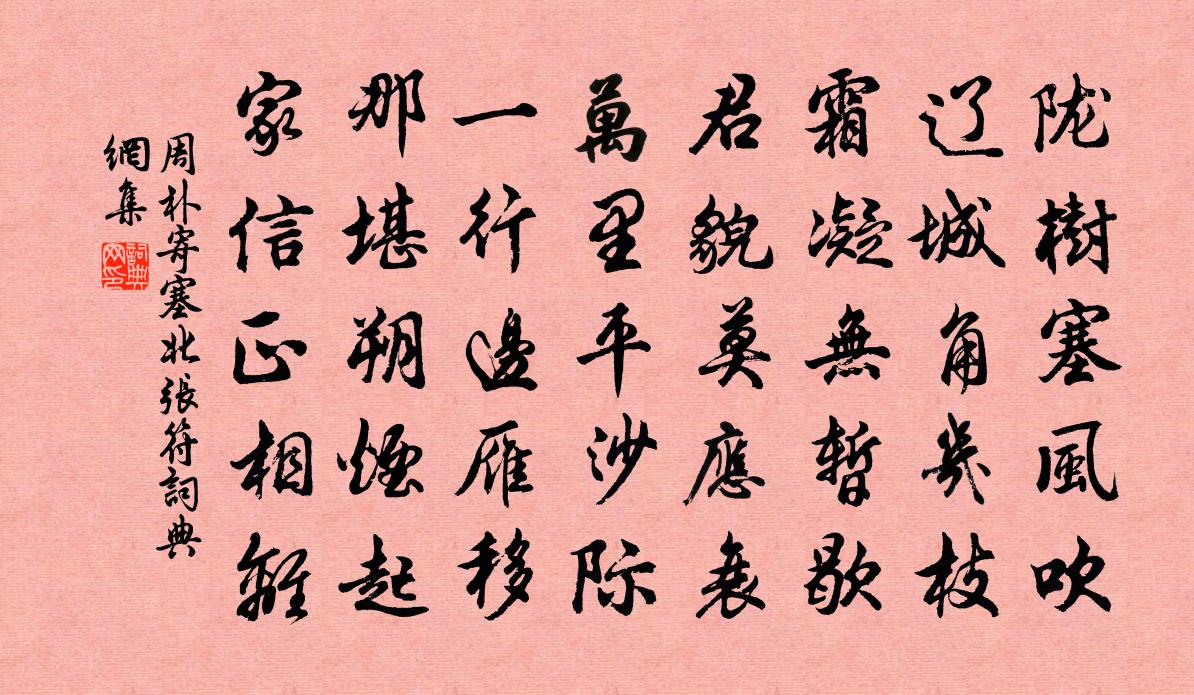 陇樹塞風吹
辽城角幾枝
霜凝無暫歇
君貌莫應衰
萬里平沙际
一行邊雁移
那堪朔煙起
家信正相離
周朴寄塞北張符詞典
網集
詞典網印